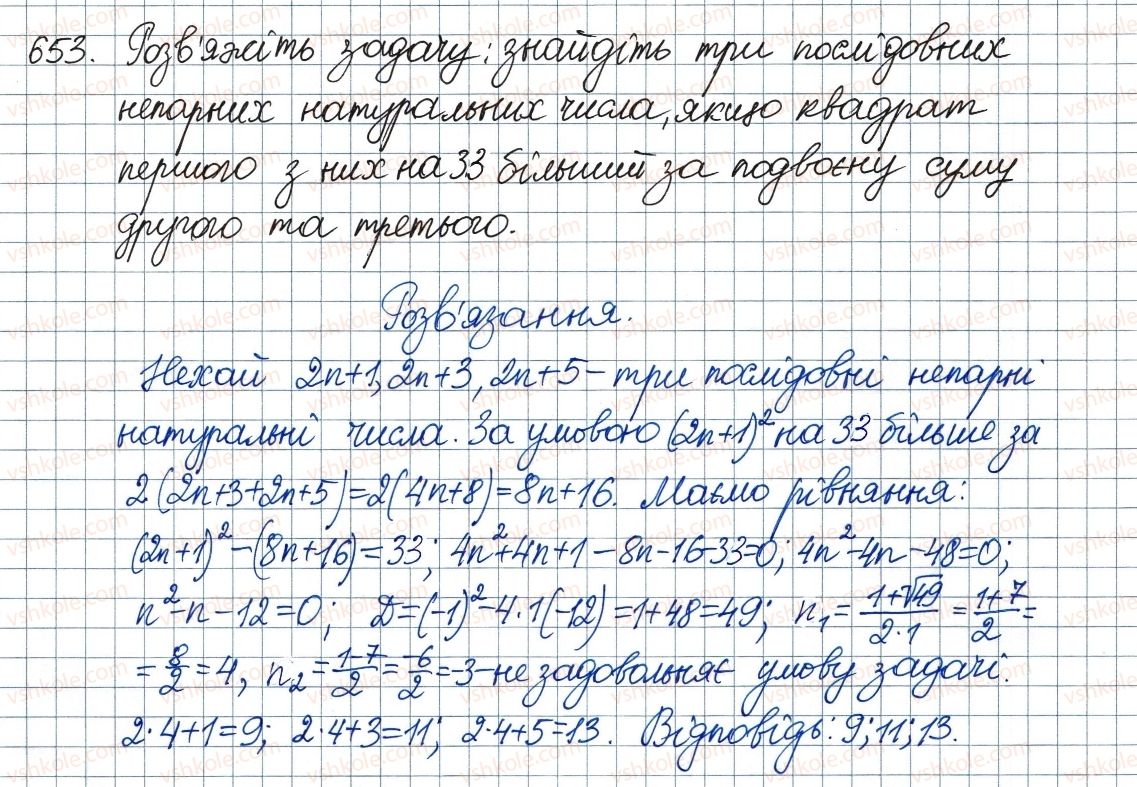 653. Розв'яжіть задачу: знайдіть три послідовних
непарних натуральних числа, якщо квадрат
першого з них на 33 більший за подвоєну суму
другого та третього.
Розв'язання.
Нехай 2n+1, 2n+3, 2n+5 – три послідовні непарні
натуральні числа. За умовою (2n+1)² на 33 більше за
2(2n+3+2n+5)=2(4n+8)=8n+16. Маємо рівняння:
(2n+1)²-(8n+16)=33; 4n²+4n+1-8n-16-33=0; 4n²-4n-48=0;
n²-n-12=0; D=(-1)²-4·1(-12)=1+48=49; n₁=(1+√49)/(2·1)=(1+7)/2=
=8/2=4, n₂=(1-7)/2=-6/2=-3-не задовольняє умову задачі.
2·4+1=9; 2·4+3=11; 2·4+5=13. Відповідь: 9; 11; 13.